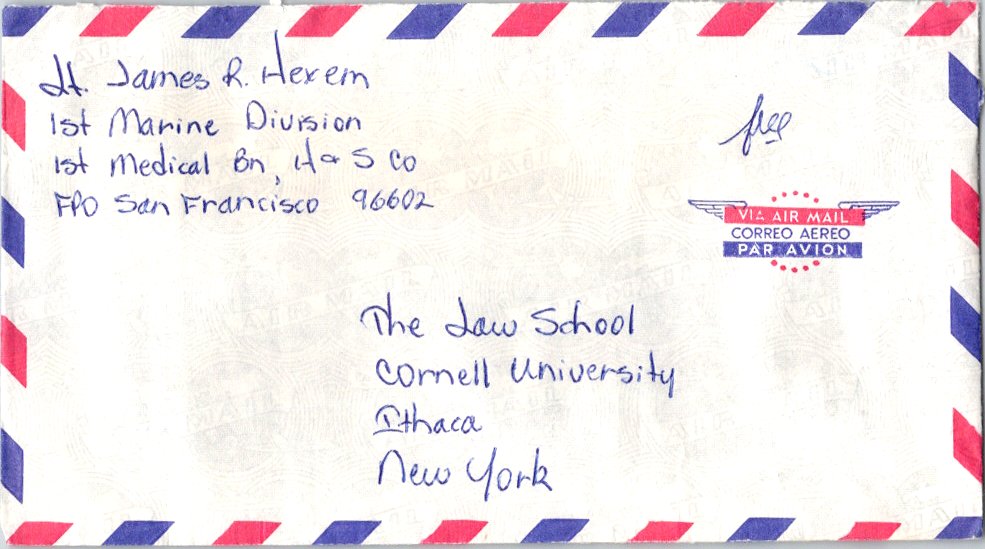 Lt. James R. Hexem
1st Marine Division
1st Medical Bn, H & S Co
FPO San Francisco 96602
free
VIA AIR MAIL
CORREO AEREO
PAR AVION
The Law School
Cornell University
Ithaca
New York